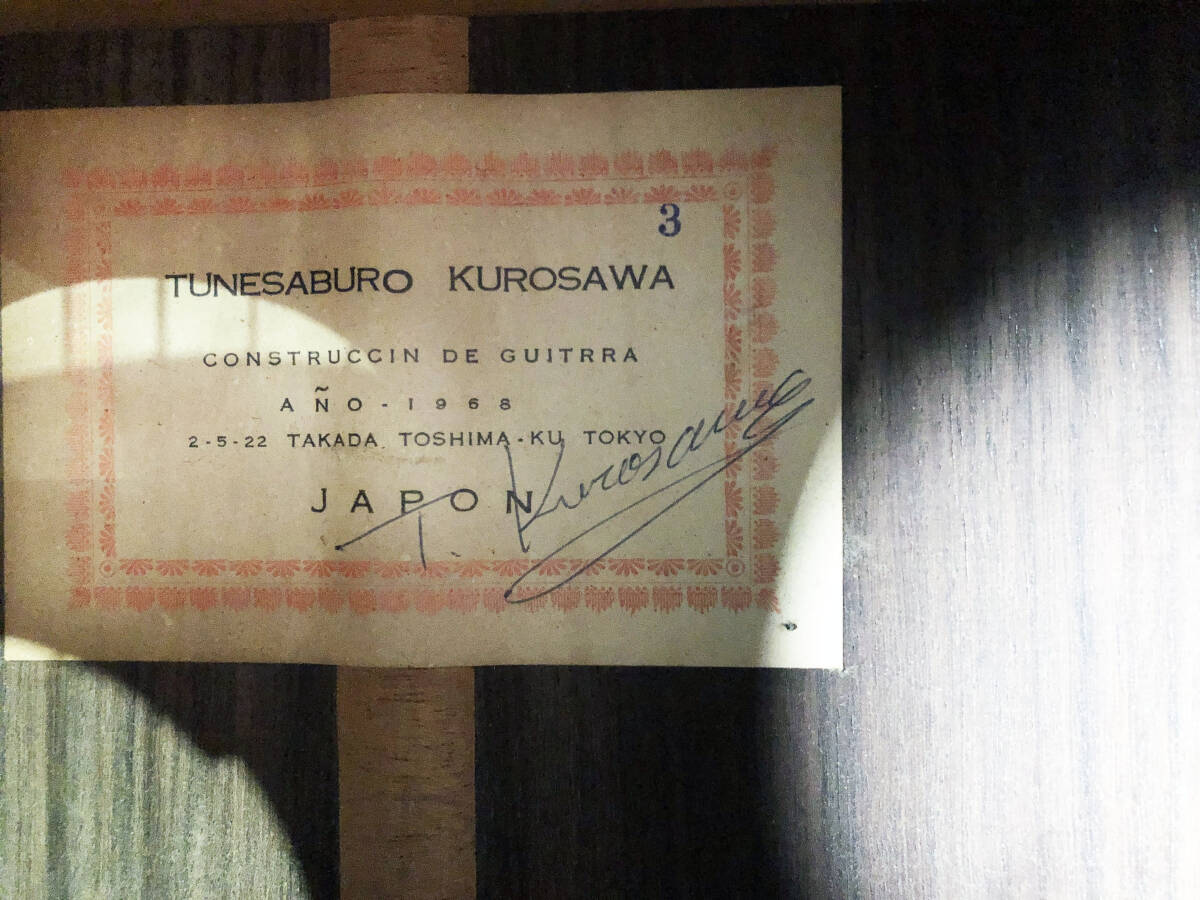 3
TUNESABURO KUROSAWA
CONSTRUCCIN DE GUITRRA
AÑO-1968
2-5-22 TAKADA. TOSHIMA-KU, TOKYO
JAPON
T. Kurosawa